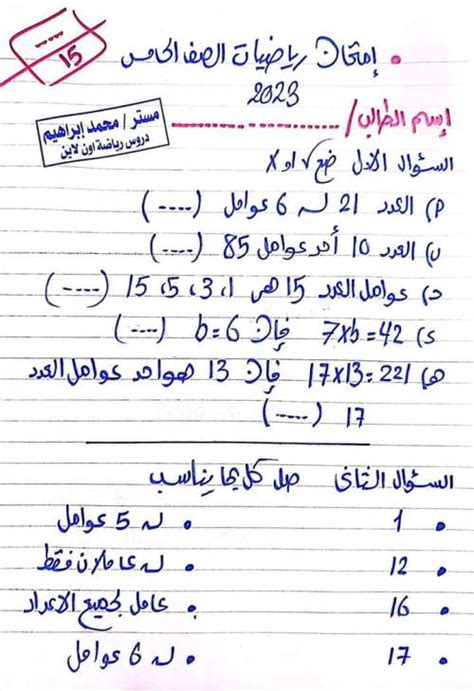 امتحان رياضيات الصف الخامس
2023
----
15
إسم الطالب/ ---------------
مستر / محمد إبراهيم
دروس رياضة اون لاين
السؤال الاول ضع √ او X
أ) العدد 21 له 6 عوامل (----)
ب) العدد 10 أحد عوامل 85 (----)
ج) عوامل العدد 15 هى 1، 3، 5، 15 (----)
د) 7xb=42 فإن b=6 (----)
هـ) 17x13=221 فإن 13 هو احد عوامل العدد
17 (----)
السؤال الثانى صل كل بما يناسب
• 1 • له 5 عوامل
• 12 • له عاملان فقط
• 16 • عامل لجميع الاعداد
• 17 • له 6 عوامل